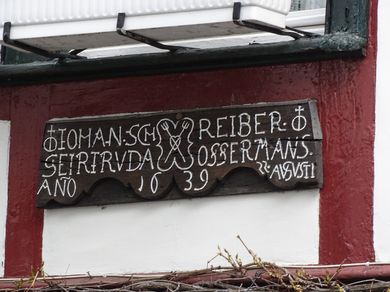 IOHAN·SCHREIBER·
GEIRTRVDA OSSERMANS
AÑO 1639 24·AVGVSTI